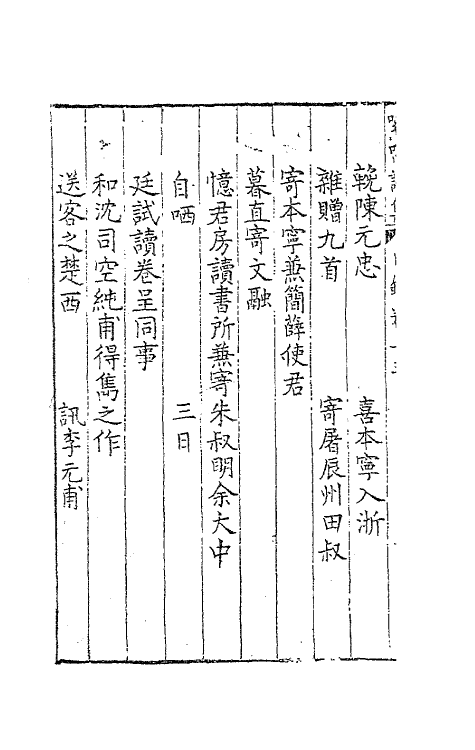 輓陳元忠 喜本寧入浙
雜贈九首 寄屠辰州田叔
寄本寧兼簡薛使君
暮直寄文融
憶君房讀書所兼寄朱叔明余大中
自哂 三日
廷試讀卷呈同事
和沈司空純甫得雋之作
送客之楚西 訊李元甫